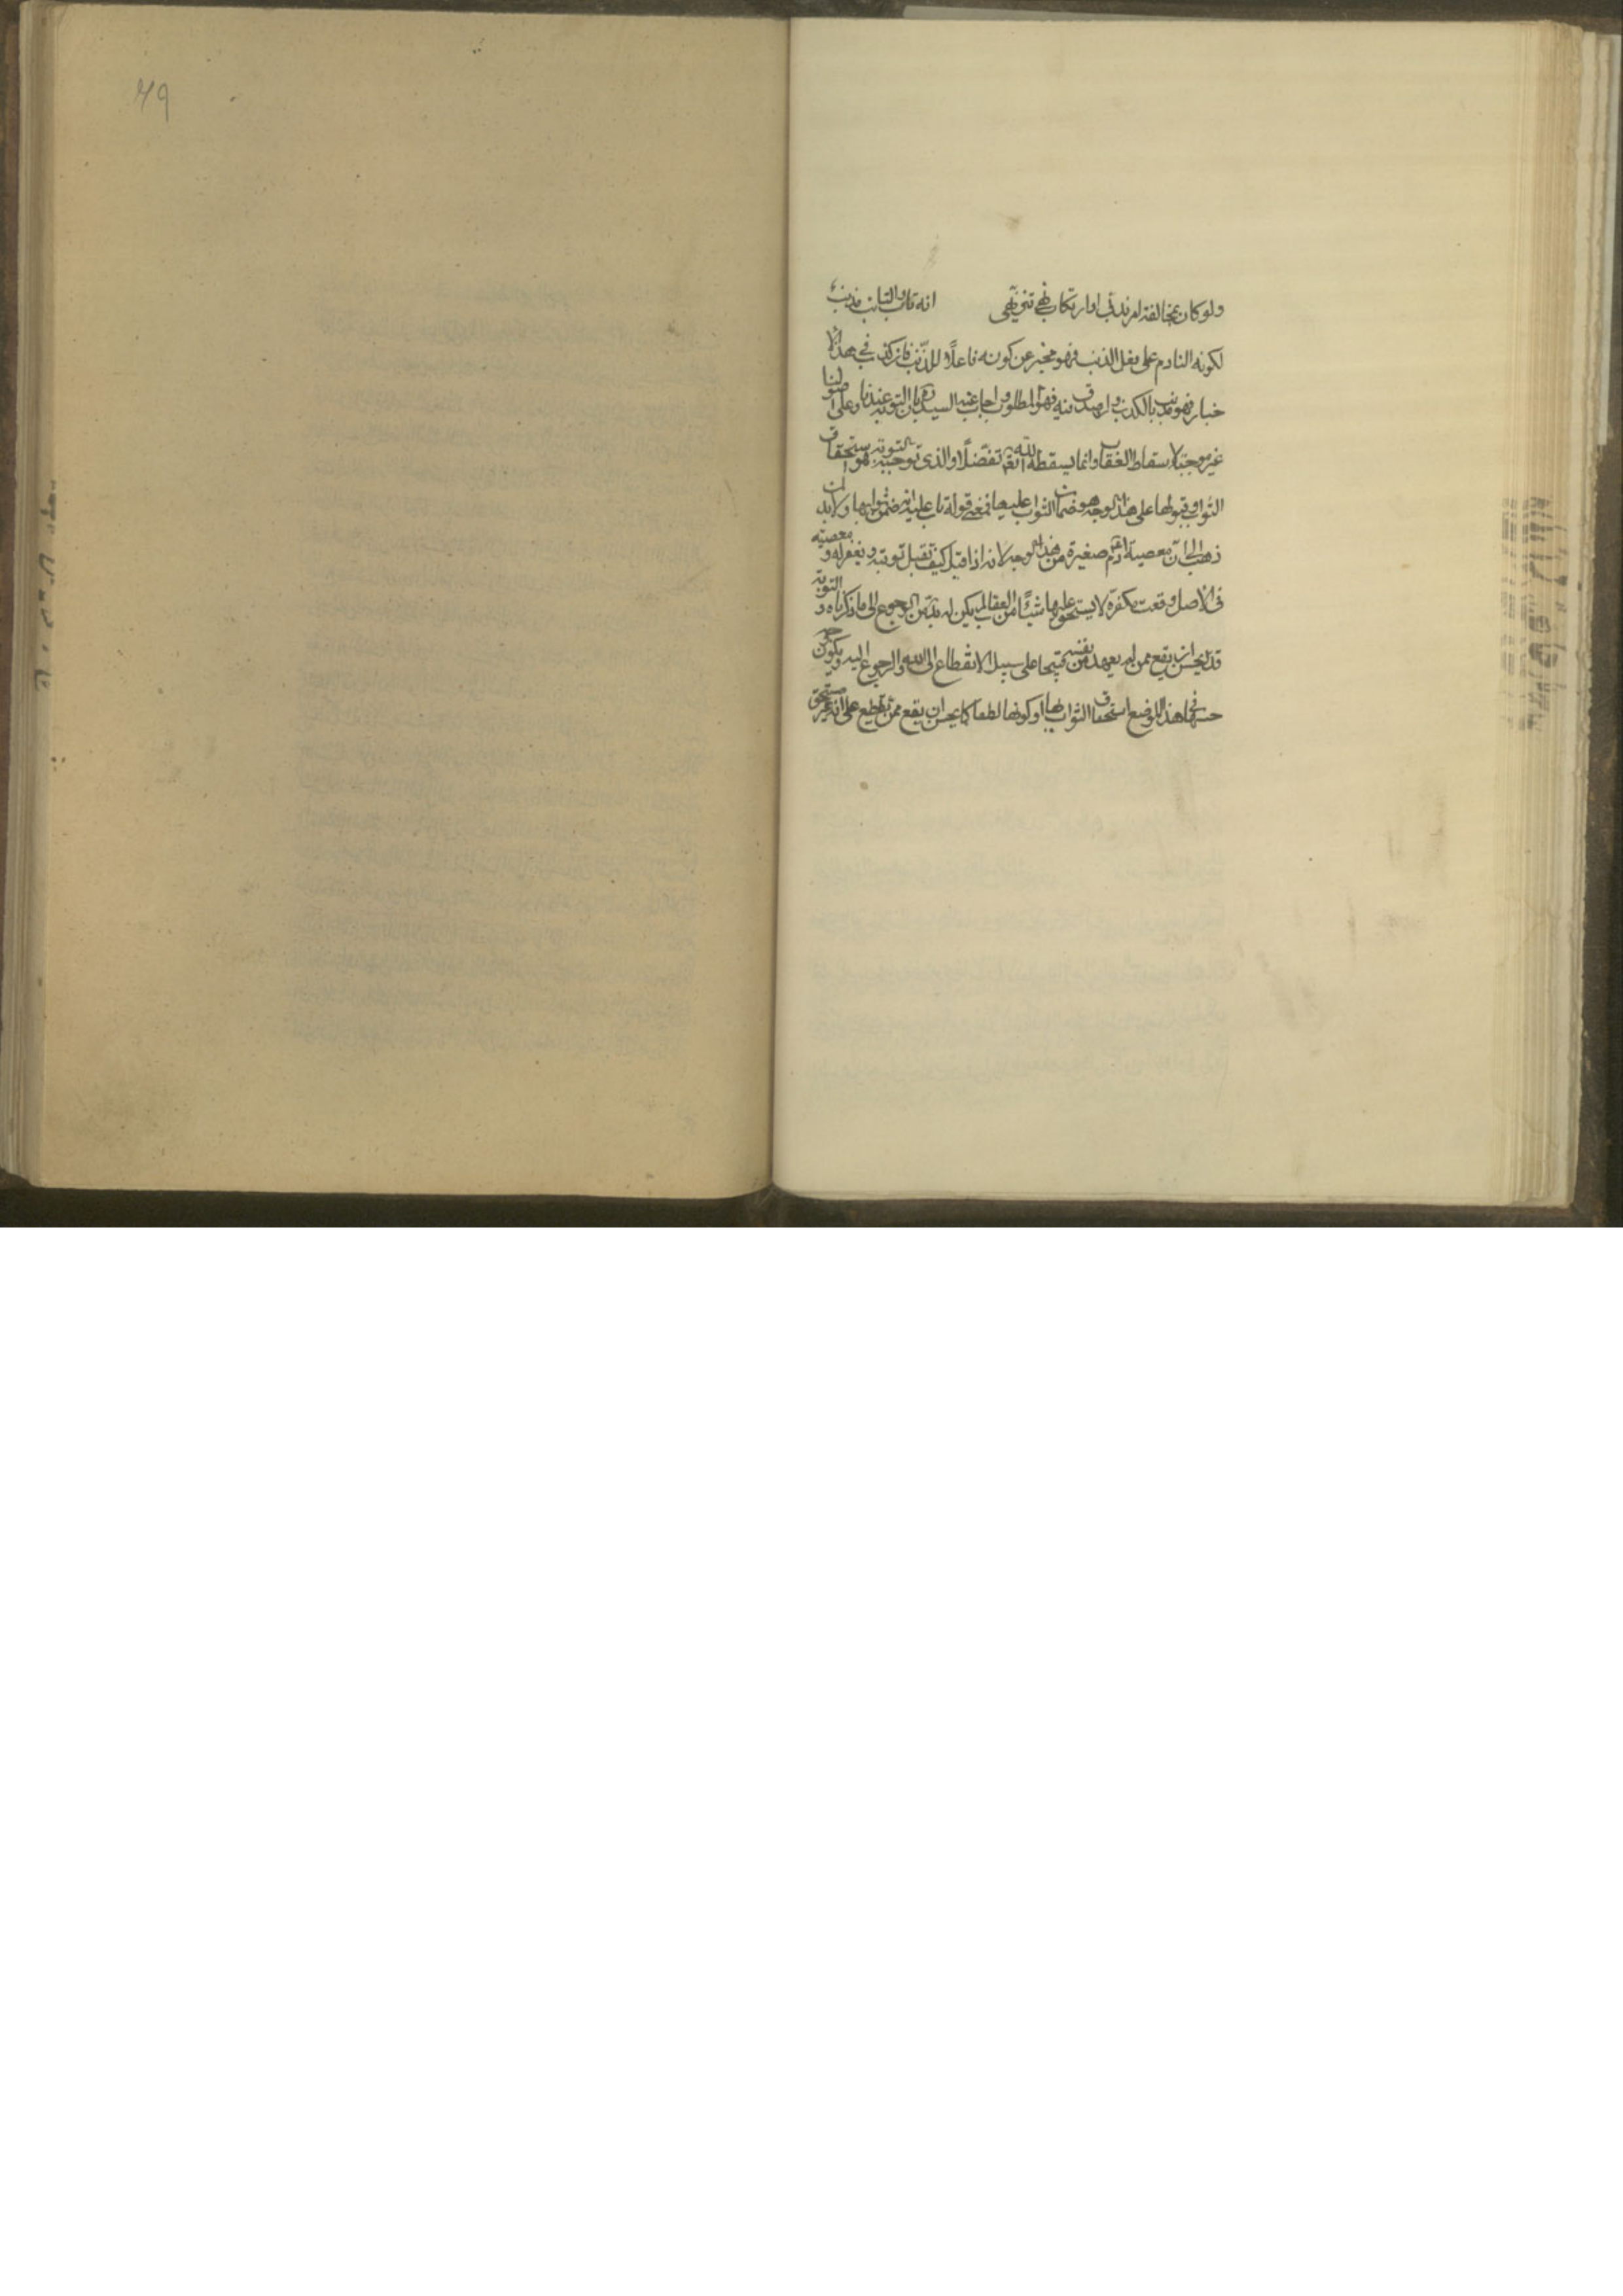 ۷۹
ولو كان بمخالفة امر ندبی او ارتكاب نهی تنزیهی انه تاب والتائب مذنب
لكونه النادم علی فعل الذنب فهو مخبر عن كونه فاعلاً للذنب فان كذب فی هذا الا
خبار فهو مذنب بالكذب وان صدق فیه فهو المطلوب اجاب عنه السید ره بان التوبة عندنا وعلی اصولنا
غیر موجبة لاسقاط العقاب وانما یسقطه الله تعم تفضلاً والذی توجبه التوبة هو استحقاق
الثواب وقبولها علی هذا الوجه هو ضمان الثواب علیها فمعنی قوله تاب علیه انه ضمن ثوابها ولابد لمن
ذهب الی ان معصیة ادم صغیرة من هذا الوجه لانه اذا قیل كیف تقبل توبته ویغفر له ومعصیته
فی الاصل وقعت مكفرة لا یستحق علیها شیئًا من العقاب لم یكن له بد من الرجوع الی ما ذكرناه والتوبة
قد یحسن ان یقع ممن لم یعهد من نفسه قبیحا علی سبیل الانقطاع الی الله والرجوع الیه ویكون وجه
حسنها فی هذا الموضع استحقاق الثواب بها او كونها لطفا كما یحسن ان یقع ممن یقطع علی انه غیر مستحق